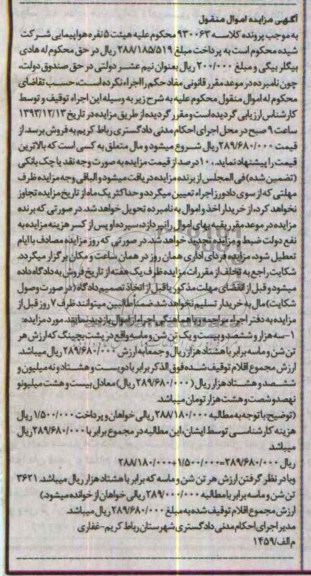 آگهی مزایده اموال منقول
به موجب پرونده کلاسه ۹۳۰۰۶۳ محکوم علیه هیئت ۵ نفره هواپیمایی شرکت
شیده محکوم است به پرداخت مبلغ ۲۸۸/۱۸۵/۵۱۹ ریال در حق محکوم له هادی
بیگلر بیگی و مبلغ ۲۰۰/۰۰۰ ریال بعنوان نیم عشر دولتی در حق صندوق دولت،
چون نامبرده در موعد مقرر قانونی مفاد حکم را اجرا نکرده است، حسب تقاضای
محکوم له اموال منقول محکوم علیه به شرح زیر به وسیله این اجراء توقیف و توسط
کارشناس ارزیابی گردیده است و مقرر گردیده از طریق مزایده در تاریخ ۱۳۹۳/۱۲/۱۳
ساعت ۹ صبح در محل اجرای احکام مدنی دادگستری رباط کریم به فروش برسد از
قیمت ۲۸۹/۶۸۰/۰۰۰ ریال شروع میشود و مال متعلق به کسی است که بالاترین
قیمت را پیشنهاد نماید. ۱۰ درصد از قیمت مزایده به صورت وجه نقد یا چک بانکی
(تضمین شده) فی المجلس از برنده مزایده دریافت میشود و الباقی وجه مزایده ظرف
مهلتی که از سوی دادورز اجراء تعیین میگردد و حداکثر یک ماه از تاریخ مزایده تجاوز
نخواهد کرد، از خریدار اخذ و اموال به نامبرده تحویل خواهد شد. در صورتی که برنده
مزایده در موعد مقرر بقیه بهای اموال را نپردازد، سپرده او پس از کسر هزینه مزایده به
نفع دولت ضبط و مزایده تجدید خواهد شد. در صورتی که روز مزایده مصادف با ایام
تعطیل شود، مزایده فردای اداری همان روز در همان ساعت و مکان برگزار میگردد.
شکایت راجع به تخلف از مقررات مزایده ظرف یک هفته از تاریخ فروش به دادگاه داده
میشود و قبل از انقضای مهلت مذکور یا قبل از اتخاذ تصمیم دادگاه (در صورت وصول
شکایت) مال به خریدار تسلیم نخواهد شد. ضمنا طالبین میتوانند ظرف ۷ روز قبل از
مزایده به دفتر اجراء مراجعه و با هماهنگی اجراء از اموال بازدید نمایند. مورد مزایده:
۱-سه هزار و ششصد و بیست و یک تن شن و ماسه واقع در پشت بچینگ که ارزش هر
تن شن و ماسه برابر با هشتاد هزار ریال و جمعا به ارزش ۲۸۹/۶۸۰/۰۰۰ ریال میباشد.
ارزش مجموع اقلام توقیف شده فوق الذکر برابر با دویست و هشتاد و نه میلیون و
ششصد و هشتاد هزار ریال (۲۸۹/۶۸۰/۰۰۰ ریال) معادل بیست و هشت میلیون و
نهصد و شصت و هشت هزار تومان میباشد.
(توضیح با توجه به مطالبه ۲۸۸/۱۸۰/۰۰۰ ریالی خواهان و پرداخت ۱/۵۰۰/۰۰۰ ریال
هزینه کارشناسی توسط ایشان، این مطالبه در مجموع برابر با ۲۸۹/۶۸۰/۰۰۰ ریال
میباشد
ریال ۲۸۹/۶۸۰/۰۰۰=۱/۵۰۰/۰۰۰+۲۸۸/۱۸۰/۰۰۰
و با در نظر گرفتن ارزش هر تن شن و ماسه که برابر با هشتاد هزار ریال میباشد. ۳۶۲۱
تن شن و ماسه برابر با مطالبه ۲۸۹/۰۰۰/۰۰۰ ریالی خواهان از خوانده میشود)
ارزش مجموع اقلام توقیف شده به مبلغ ۲۸۹/۶۸۰/۰۰۰ ریال میباشد.
مدیر اجرای احکام مدنی دادگستری شهرستان رباط کریم-غفاری
م الف/۱۴۵۹